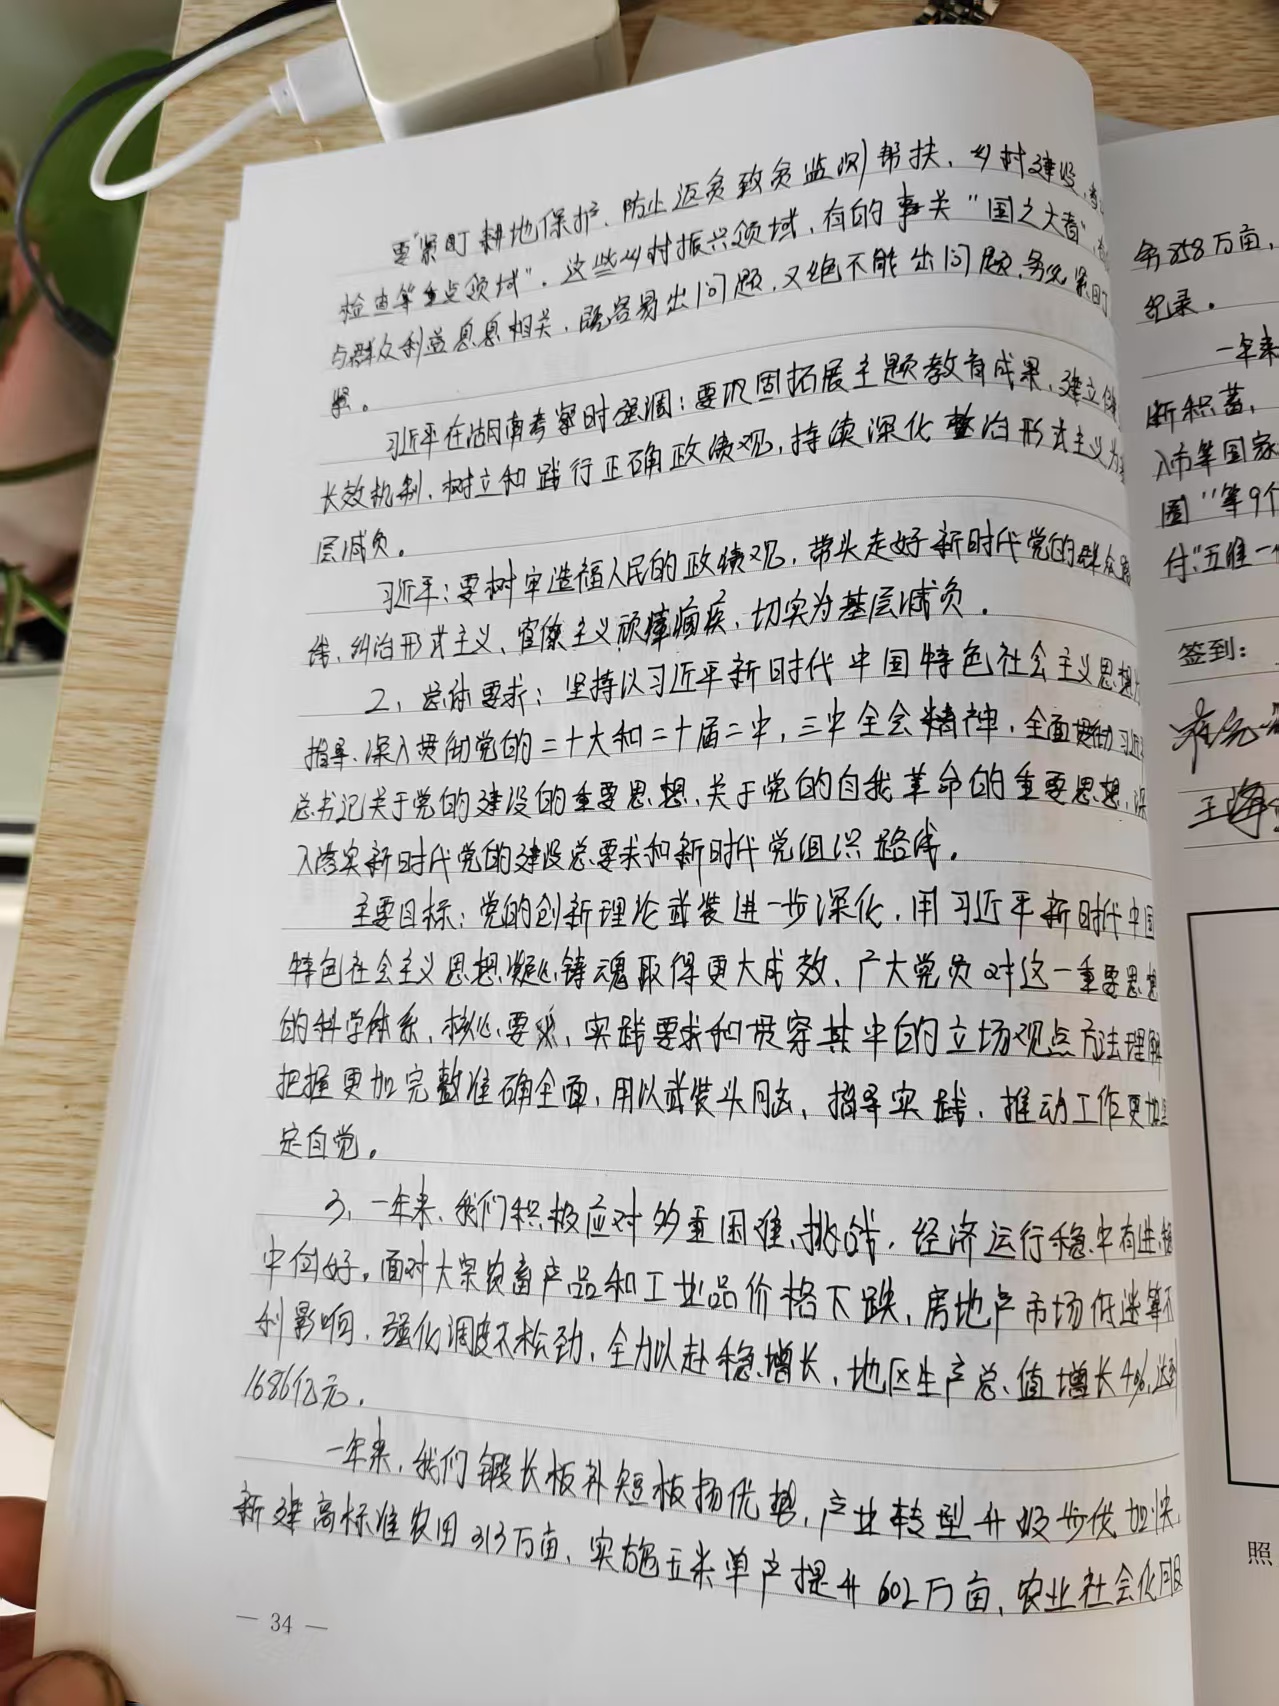 要"紧盯耕地保护、防止返贫致贫监测帮扶、乡村建设、
检查等重点领域"。这些乡村振兴领域,有的事关"国之大者",
与群众利益息息相关,既容易出问题,又绝不能出问题,务必紧盯
紧。
习近平在湖南考察时强调:要巩固拓展主题教育成果,建立健
长效机制,树立和践行正确政绩观,持续深化整治形式主义为基
层减负。
习近平:要树牢造福人民的政绩观,带头走好新时代党的群众路
线,纠治形式主义、官僚主义顽瘴痼疾,切实为基层减负。
2、总体要求:坚持以习近平新时代中国特色社会主义思想为
指导,深入贯彻党的二十大和二十届二中,三中全会精神,全面贯彻习近平
总书记关于党的建设的重要思想、关于党的自我革命的重要思想,深
入落实新时代党的建设总要求和新时代党组织路线。
主要目标:党的创新理论武装进一步深化,用习近平新时代中国
特色社会主义思想凝心铸魂取得更大成效,广大党员对这一重要思想
的科学体系,核心要义,实践要求和贯穿其中的立场观点方法理解
把握更加完整准确全面,用以武装头脑、指导实践、推动工作更加坚
定自觉。
3、一年来,我们积极应对多重困难、挑战,经济运行稳中有进、稳
中向好。面对大宗农畜产品和工业品价格下跌,房地产市场低迷等不
利影响,强化调度不松劲,全力以赴稳增长,地区生产总值增长4%,达到
1686亿元。
一年来,我们锻长板补短板扬优势,产业转型升级步伐加快,
新建高标准农田313万亩,实施玉米单产提升602万亩,农业社会化服
— 34 —
务858万亩,
纪录。
一年来
断积蓄,
入市等国家
圈"等9个
付"五难一
签到:
王海
照